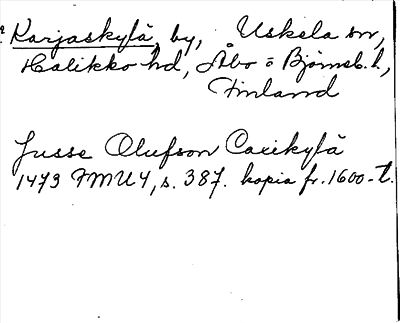 Karjaskylä, by, Uskela sn,
Halikko hd, Åbo o Björneb. l.,
Finland
Jusse Olufson Carikylä
1473 FMU4, s. 387. kopia fr. 1600-t.